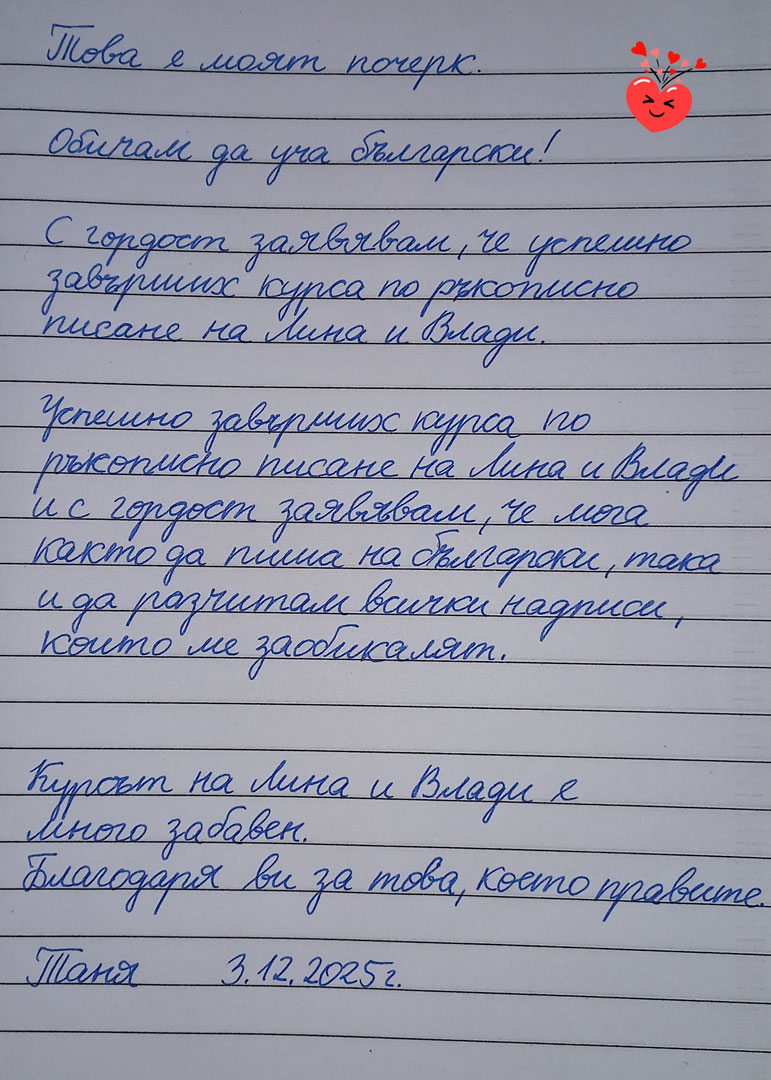 Това е моят почерк.
Обичам да уча български!
С гордост заявявам, че успешно
завърших курса по ръкописно
писане на Лина и Влади.
Успешно завърших курса по
ръкописно писане на Лина и Влади
и с гордост заявявам, че мога
както да пиша на български, така
и да разчитам всички надписи,
които ме заобикалят.
Курсът на Лина и Влади е
много забавен.
Благодаря ви за това, което правите.
Таня 3.12.2025г.